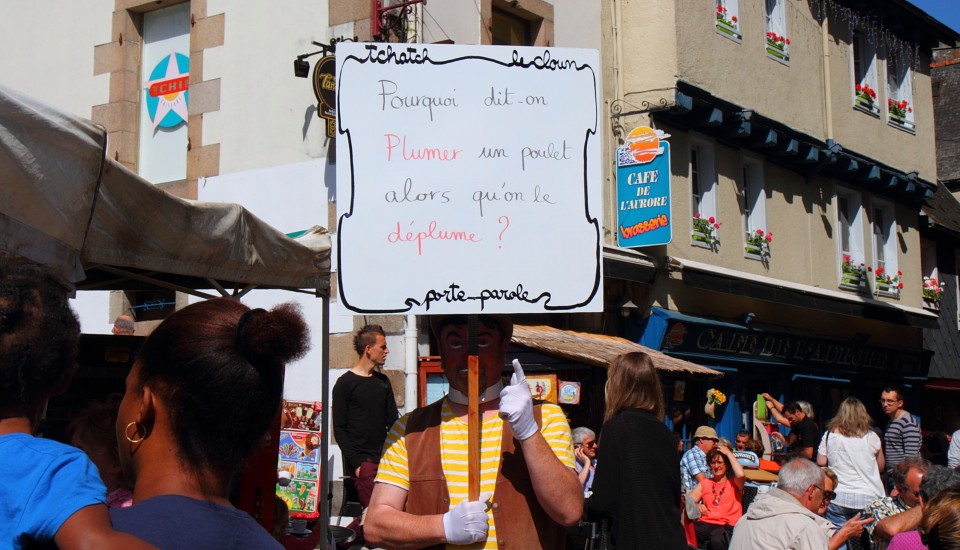 tchatch le cloun
Pourquoi dit-on
Plumer un poulet
alors qu'on le
déplume ?
porte-parole
TCHI
CAFE
DE
L'AURORE
brasserie
CAFE DE L'AURORE